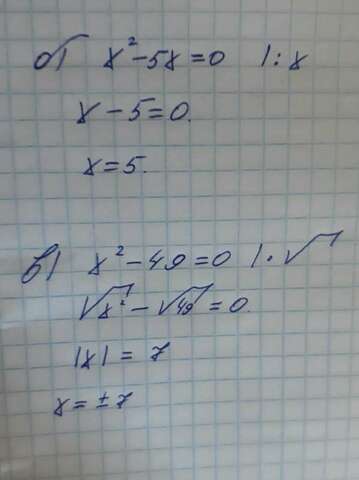 б) x² - 5x = 0 | : x
x - 5 = 0.
x = 5.
в) x² - 49 = 0 | · √
√x² - √49 = 0.
|x| = 7
x = ±7